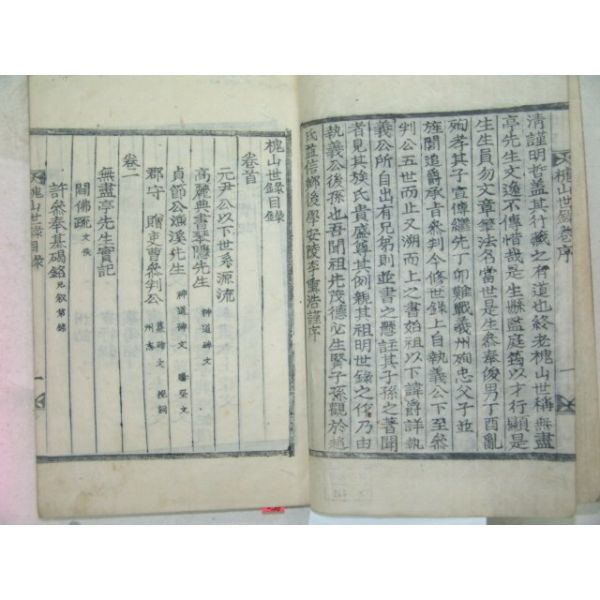 槐山世錄卷序
清謹明哲盖其行藏之有道也終老槐山世稱無盡
亭先生文逸不傳惜哉是生縣監庭筠以才行顯是
生生員勿文章筆法名當世是生參奉俊男丁酉亂
殉孝其子宣傳繼先丁卯難戰義州殉忠父子並
旌閭追爵承者參判今修世錄上自執義公下至參
判公五世而止又溯而上之書始祖以下諱爵詳執
義公所自出有兄弟則並書之懸註其子孫之著聞
者見其族氏貴盛尊其例親其祖明世錄之作乃由
執義公後孫也吾聞祖先茂德必生賢子孫觀於趙
氏益信鄉後學安陵李重浩謹序
槐山世錄目錄
卷首
元尹公以下世系源流
高麗典書 隱先生
貞節公漁溪先生 神道碑文
郡守 贈吏曹參判公 墓碑文
卷二
無盡亭先生實記
闢佛疏 文佚
許參奉基碣銘
槐山世錄目錄
一